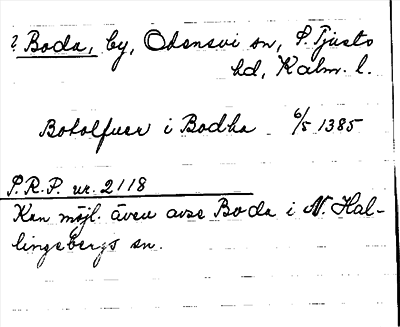 ? Boda, by, Odensvi sn, S. Tjusts
hd, Kalm. l.
Botolfuer i Bodha 6/5 1385
S.R.P. nr. 2118
Kan möjl. även avse Boda i N. Hal-
lingebergs sn.